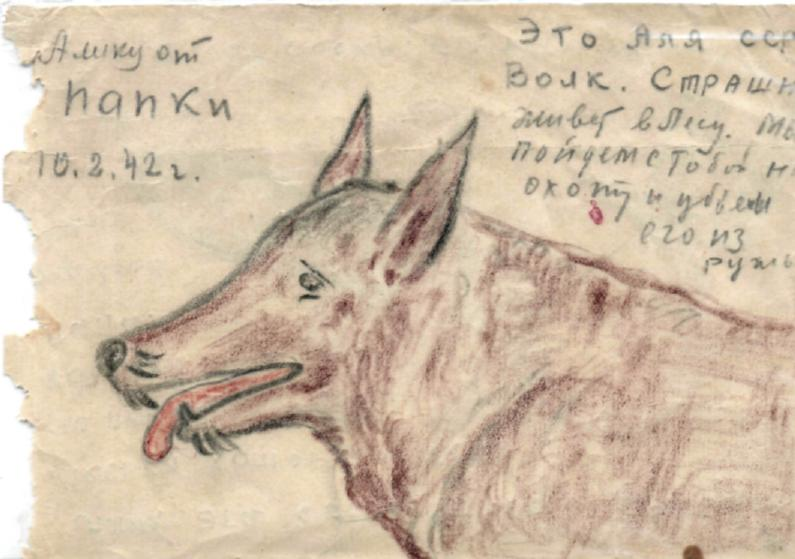 Алику от
папки
10.2.42 г.
Это Аля сер
Волк. Страшн
живет в лесу. Мы
пойдем с тобой н
охоту и убьем
его из
ружь